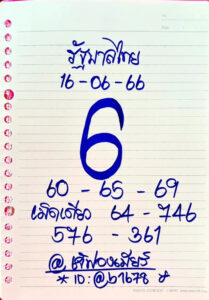 รัฐบาลไทย
16-06-66
6
60 - 65 - 69
เม็ดเดียว 64 - 746
576 - 361
@เจ๊ฟองเบียร์
* ID:@b1678 *